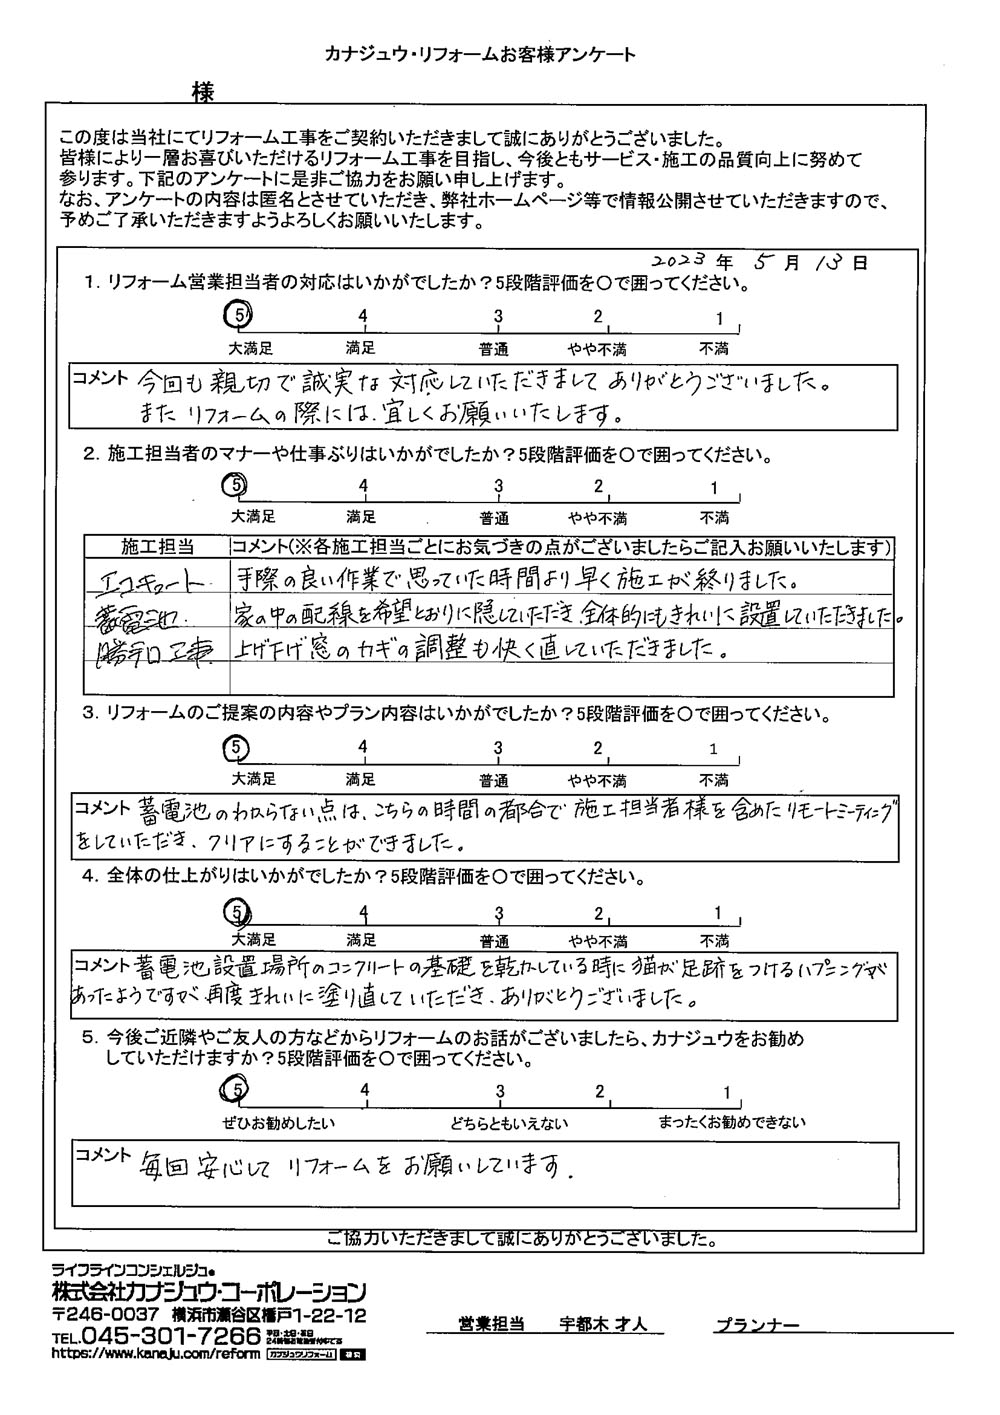 カナジュウ・リフォームお客様アンケート
様
この度は当社にてリフォーム工事をご契約いただきまして誠にありがとうございました。
皆様により一層お喜びいただけるリフォーム工事を目指し、今後ともサービス・施工の品質向上に努めて
参ります。下記のアンケートに是非ご協力をお願い申し上げます。
なお、アンケートの内容は匿名とさせていただき、弊社ホームページ等で情報公開させていただきますので、
予めご了承いただきますようよろしくお願いいたします。
2023 年 5 月 13 日
1. リフォーム営業担当者の対応はいかがでしたか？5段階評価を〇で囲ってください。
5 4 3 2 1
大満足 満足 普通 やや不満 不満
コメント 今回も親切で誠実な対応していただきましてありがとうございました。
またリフォームの際には、宜しくお願いいたします。
2. 施工担当者のマナーや仕事ぶりはいかがでしたか？5段階評価を〇で囲ってください。
5 4 3 2 1
大満足 満足 普通 やや不満 不満
施工担当 コメント(※各施工担当ごとにお気づきの点がございましたらご記入お願いいたします)
エコキュート 手際の良い作業で思っていた時間より早く施工が終りました。
蓄電池. 家の中の配線を希望どおりに隠していただき、全体的にもきれいに設置していただきました。
勝手口工事 上げ下げ窓のカギの調整も快く直していただきました。
3. リフォームのご提案の内容やプラン内容はいかがでしたか？5段階評価を〇で囲ってください。
5 4 3 2 1
大満足 満足 普通 やや不満 不満
コメント 蓄電池のわからない点は、こちらの時間の都合で施工担当者様を含めたリモートミーティング
をしていただき、クリアにすることができました。
4. 全体の仕上がりはいかがでしたか？5段階評価を〇で囲ってください。
5 4 3 2 1
大満足 満足 普通 やや不満 不満
コメント 蓄電池設置場所のコンクリートの基礎を乾かしている時に猫が足跡をつけるハプニングが
あったようですが再度きれいに塗り直していただき、ありがとうございました。
5. 今後ご近隣やご友人の方などからリフォームのお話がございましたら、カナジュウをお勧め
していただけますか？5段階評価を〇で囲ってください。
5 4 3 2 1
ぜひお勧めしたい どちらともいえない まったくお勧めできない
コメント 毎回安心してリフォームをお願いしています.
ご協力いただきまして誠にありがとうございました。
ライフラインコンシェルジュ●
株式会社カナジュウ・コーポレーション
〒246-0037 横浜市瀬谷区橋戸1-22-12
TEL.045-301-7266 平日・土日・祝日
24時間お電話受付中です
https://www.kanaju.com/reform カナジュウリフォーム 検索
営業担当 宇都木 才人 プランナー